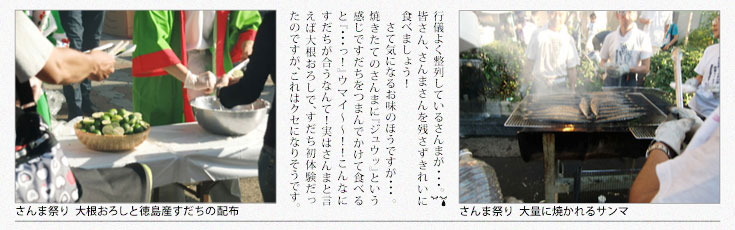 行儀よく整列しているさんまが・・・。
皆さん、さんまさんを残さずきれいに
食べましょう！
さて気になるお味のほうですが・・・。
焼きたてのさんまに『ジュウッ』という
感じですだちをつまんでかけて食べる
と『・・・っ！』ウマイ～～！！こんなに
すだちが合うなんて！実はさんまと言
えば大根おろしで、すだち初体験だっ
たのですが、これはクセになりそうです。
さんま祭り 大根おろしと徳島産すだちの配布
さんま祭り 大量に焼かれるサンマ